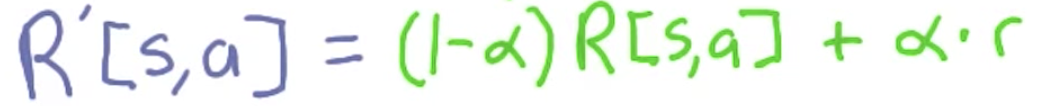 R'[s,a] = (1-α) R[s,a] + α·r